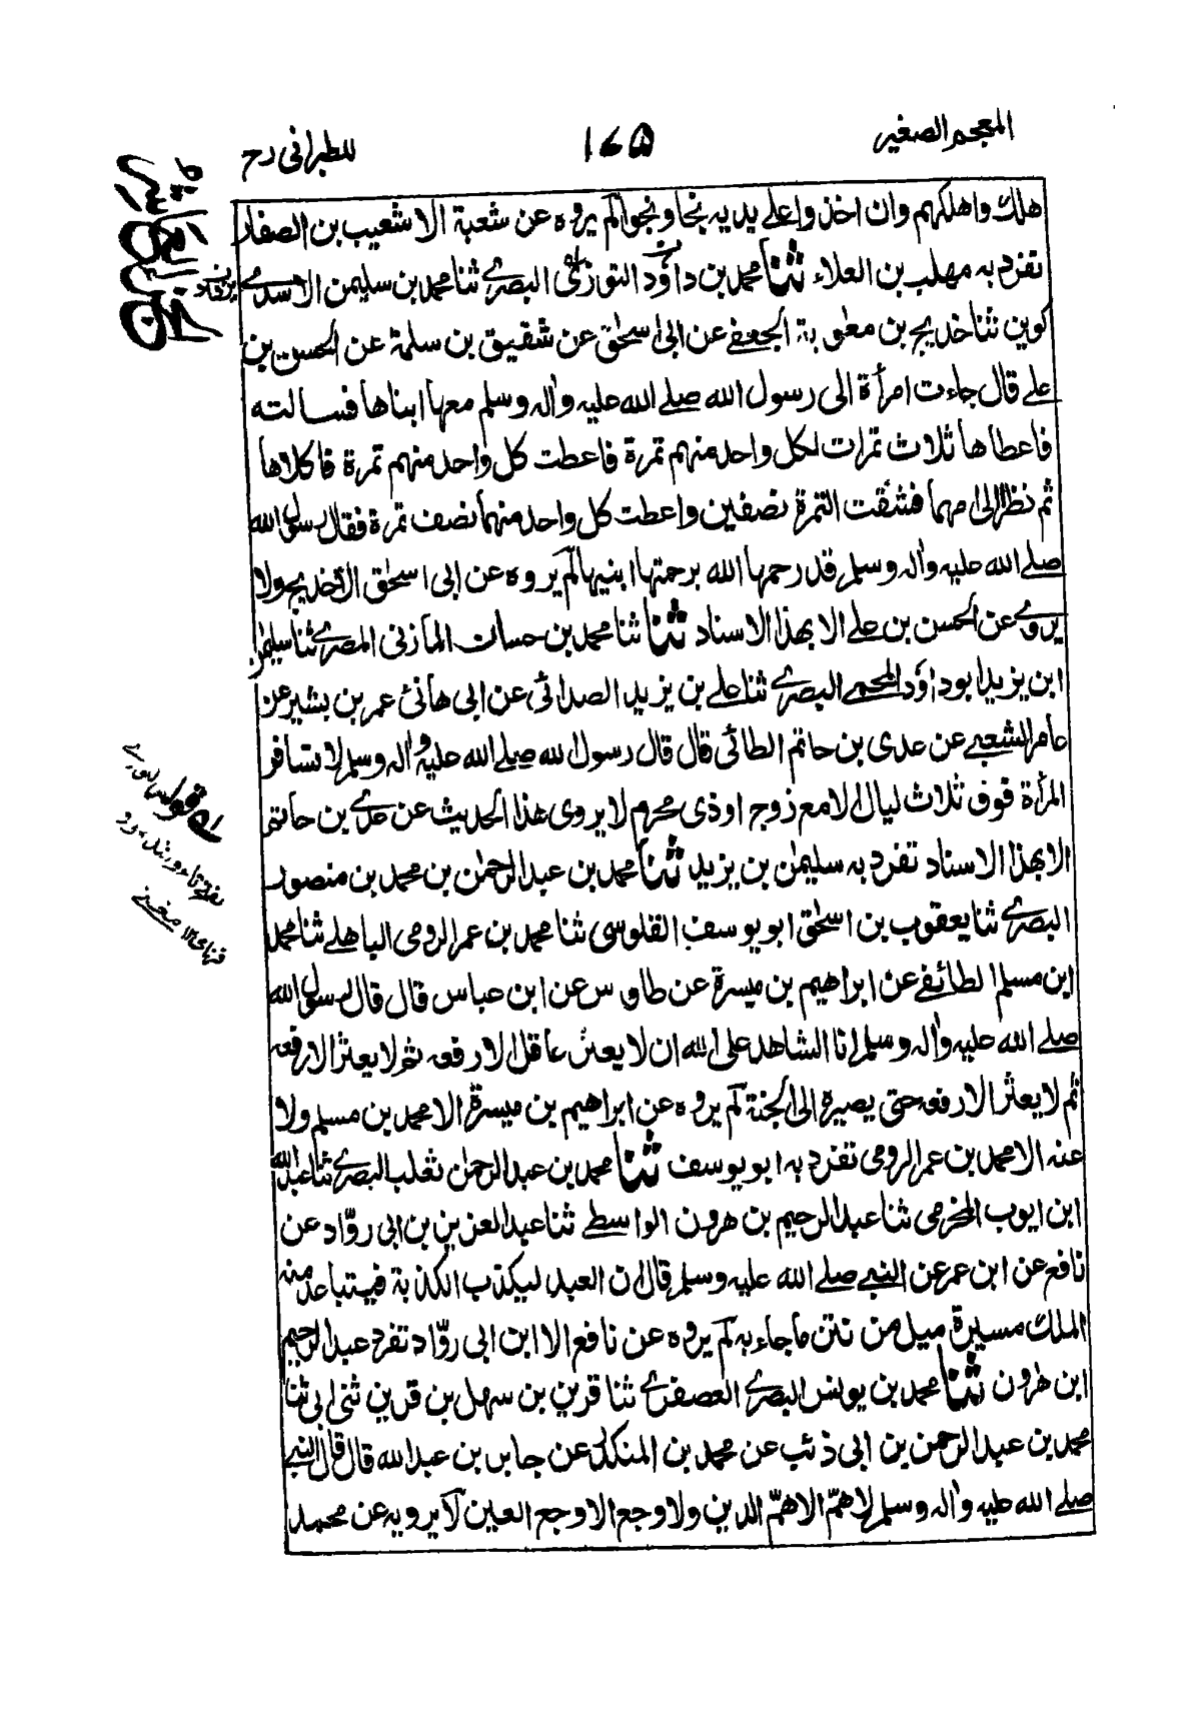 المعجم الصغير
١٧٥
للطبرانى رح
هلك واهلكهم وان اخذ واعلے يديه نجا ونجوا لم يروه عن شعبة الا شعيب بن الصفار
تفرد به مهلب بن العلاء ثنا محمد بن داؤد التوزى البصرے ثنا محمد بن سليمن الاسدے
لوين ثنا خديج بن معٰوية الجعفے عن ابى اسحٰق عن شقيق بن سلمة عن الحسن بن
علے قال جاءت امرأة الى رسول الله صلے الله عليه واٰله وسلم معها ابناها فسالته
فاعطاها ثلاث تمرات لكل واحد منهم تمرة فاعطت كل واحد منهم تمرة فاكلاها
ثم نظرا الى امهما فشقت التمرة نصفين واعطت كل واحد منهما نصف تمرة فقال رسول الله
صلے الله عليه واٰله وسلم قد رحمها الله برحمتها ابنيها لم يروه عن ابى اسحٰق الا خديج ولا
يروے عن الحسن بن علے الا بهذا الاسناد ثنا ثنا محمد بن حسان المازنى المصرے ثنا سليمٰن
ابن يزيد ابو داؤد المحمے البصرے ثنا علے بن يزيد الصدائى عن ابى هانئ عمر بن بشير عن
عامر الشعبے عن عدى بن حاتم الطائى قال قال رسول الله صلے الله عليه واٰله وسلم لا تسافر
المرأة فوق ثلاث ليال الا مع زوج اوذى محرم لا يروى هذا الحديث عن عدے بن حاتم
الا بهذا الاسناد تفرد به سليمٰن بن يزيد ثنا محمد بن عبد الرحمٰن بن محمد بن منصور
البصرے ثنا يعقوب بن اسحٰق ابو يوسف القلوسى ثنا محمد بن عمر الرومى الباهلے ثنا محمد
ابن مسلم الطائفے عن ابراهيم بن ميسرة عن طاوس عن ابن عباس قال قال رسول الله
صلے الله عليه واٰله وسلم انا الشاهد على الله ان لا يعثر عاقل الا رفعه ثم لا يعثر الا رفعه
ثم لا يعثر الا رفعه حتى يصيره الى الجنة لم يروه عن ابراهيم بن ميسرة الا محمد بن مسلم ولا
عنه الا محمد بن عمر الرومى تفرد به ابو يوسف ثنا محمد بن عبد الرحمٰن ثعلب البصرے ثنا عبد الله
ابن ايوب المخرمى ثنا عبد الرحيم بن هرون الواسطے ثنا عبد العزيز بن ابى روّاد عن
نافع عن ابن عمر عن النبے صلے الله عليه وسلم قال ان العبد ليكذب الكذبة فيتباعد منه
الملك مسيرة ميل من نتن ما جاء به لم يروه عن نافع الا ابن ابى روّاد تفرد عبد الرحيم
ابن هٰرون ثنا محمد بن يونس البصرے العصفرے ثنا قرين بن سهل بن قرين ثنى ابى ثنا
محمد بن عبد الرحمن بن ابى ذئب عن محمد بن المنكدر عن جابر بن عبد الله قال قال النبے
صلے الله عليه واٰله وسلم لا همّ الا همّ الدين ولا وجع الا وجع العين لا يرويه عن محمد
له قوله